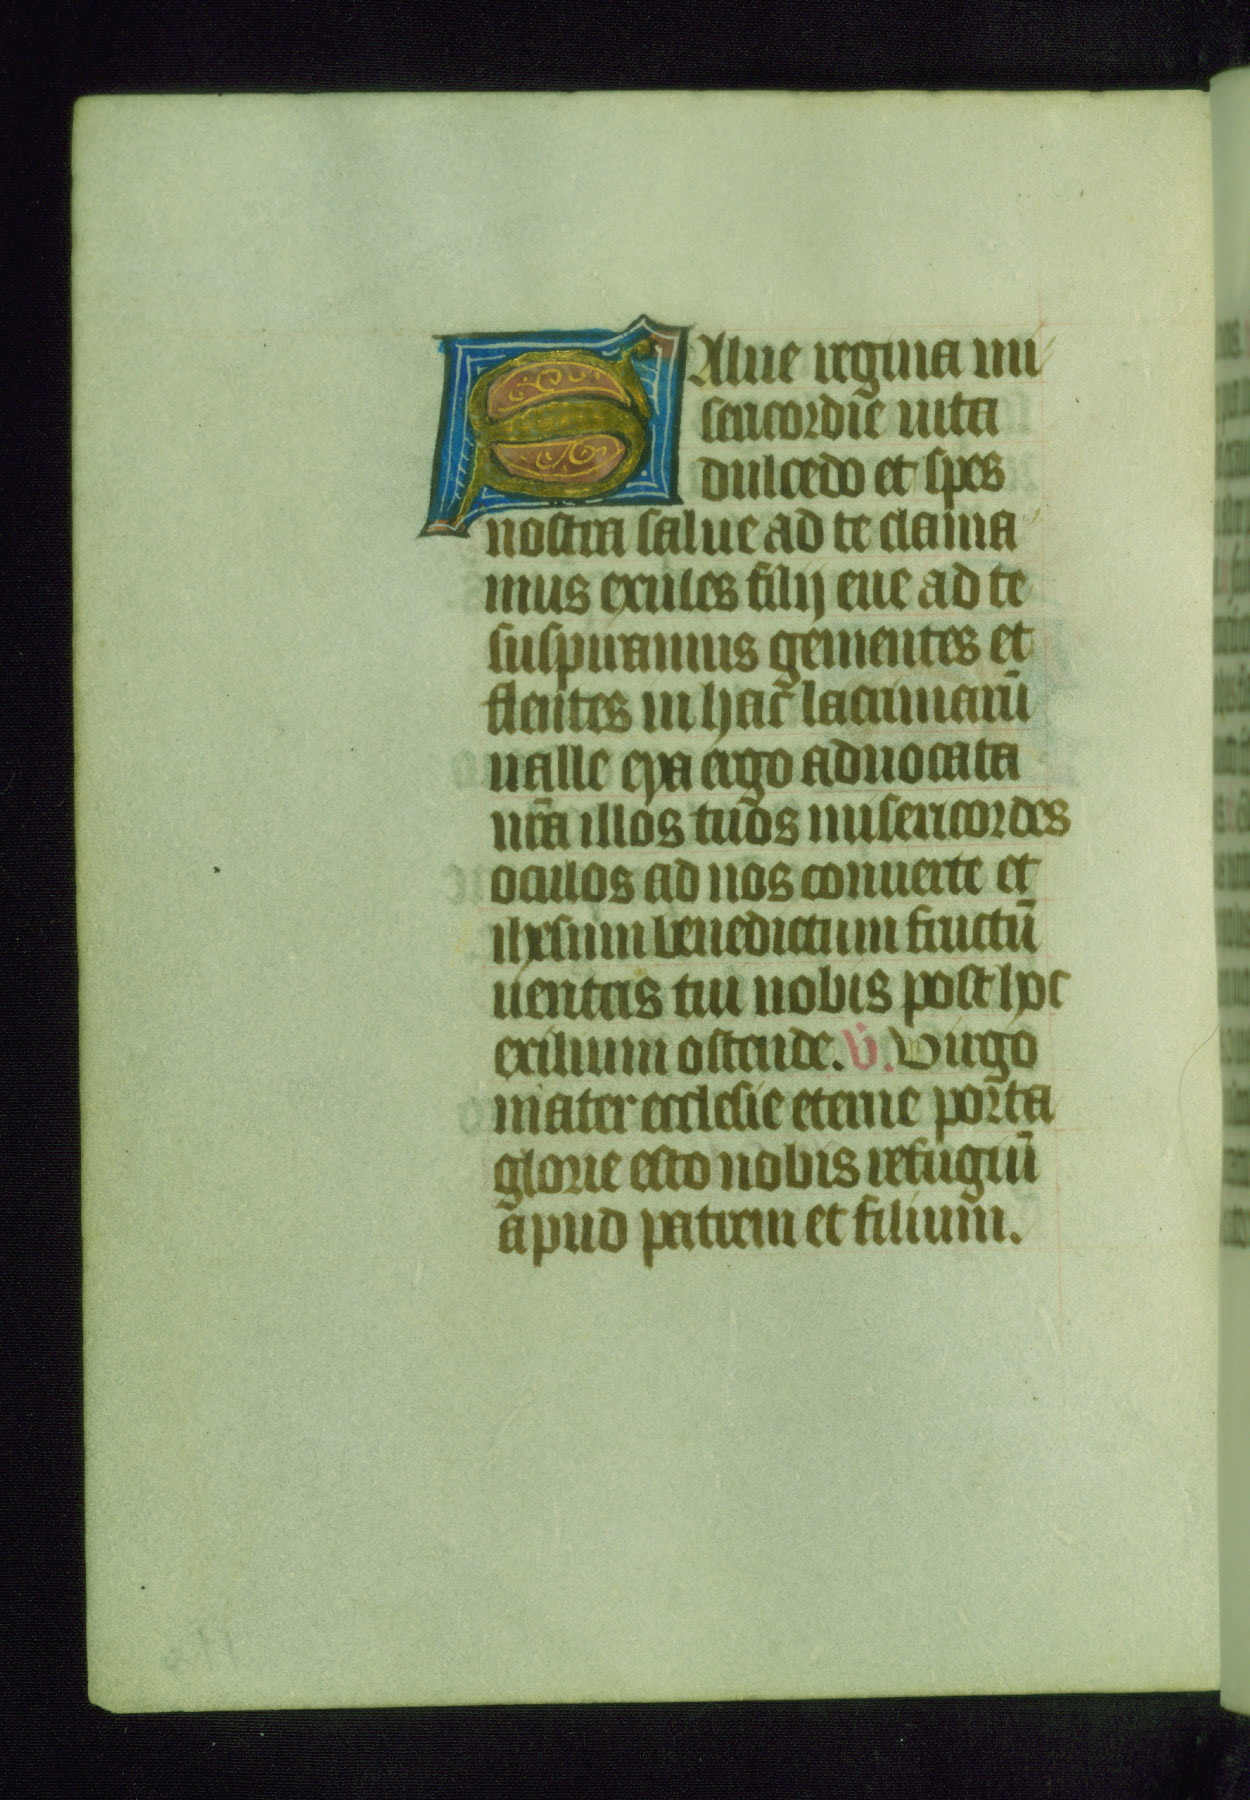 Salue regina mi
sericordie uita
dulcedo et spes
nostra salue ad te clama
mus exules filij eue ad te
suspiramus gementes et
flentes in hac̄ lacrimarū
ualle eya ergo aduocata
nr̄a illos tuos misericordes
oculos ad nos conuerte et
ihesum benedictum fructū
uentris tui nobis post hoc
exilium ostende. V̇. Virgo
mater ecclesie eterne porta
glorie esto nobis refugiū
apud patrem et filium.